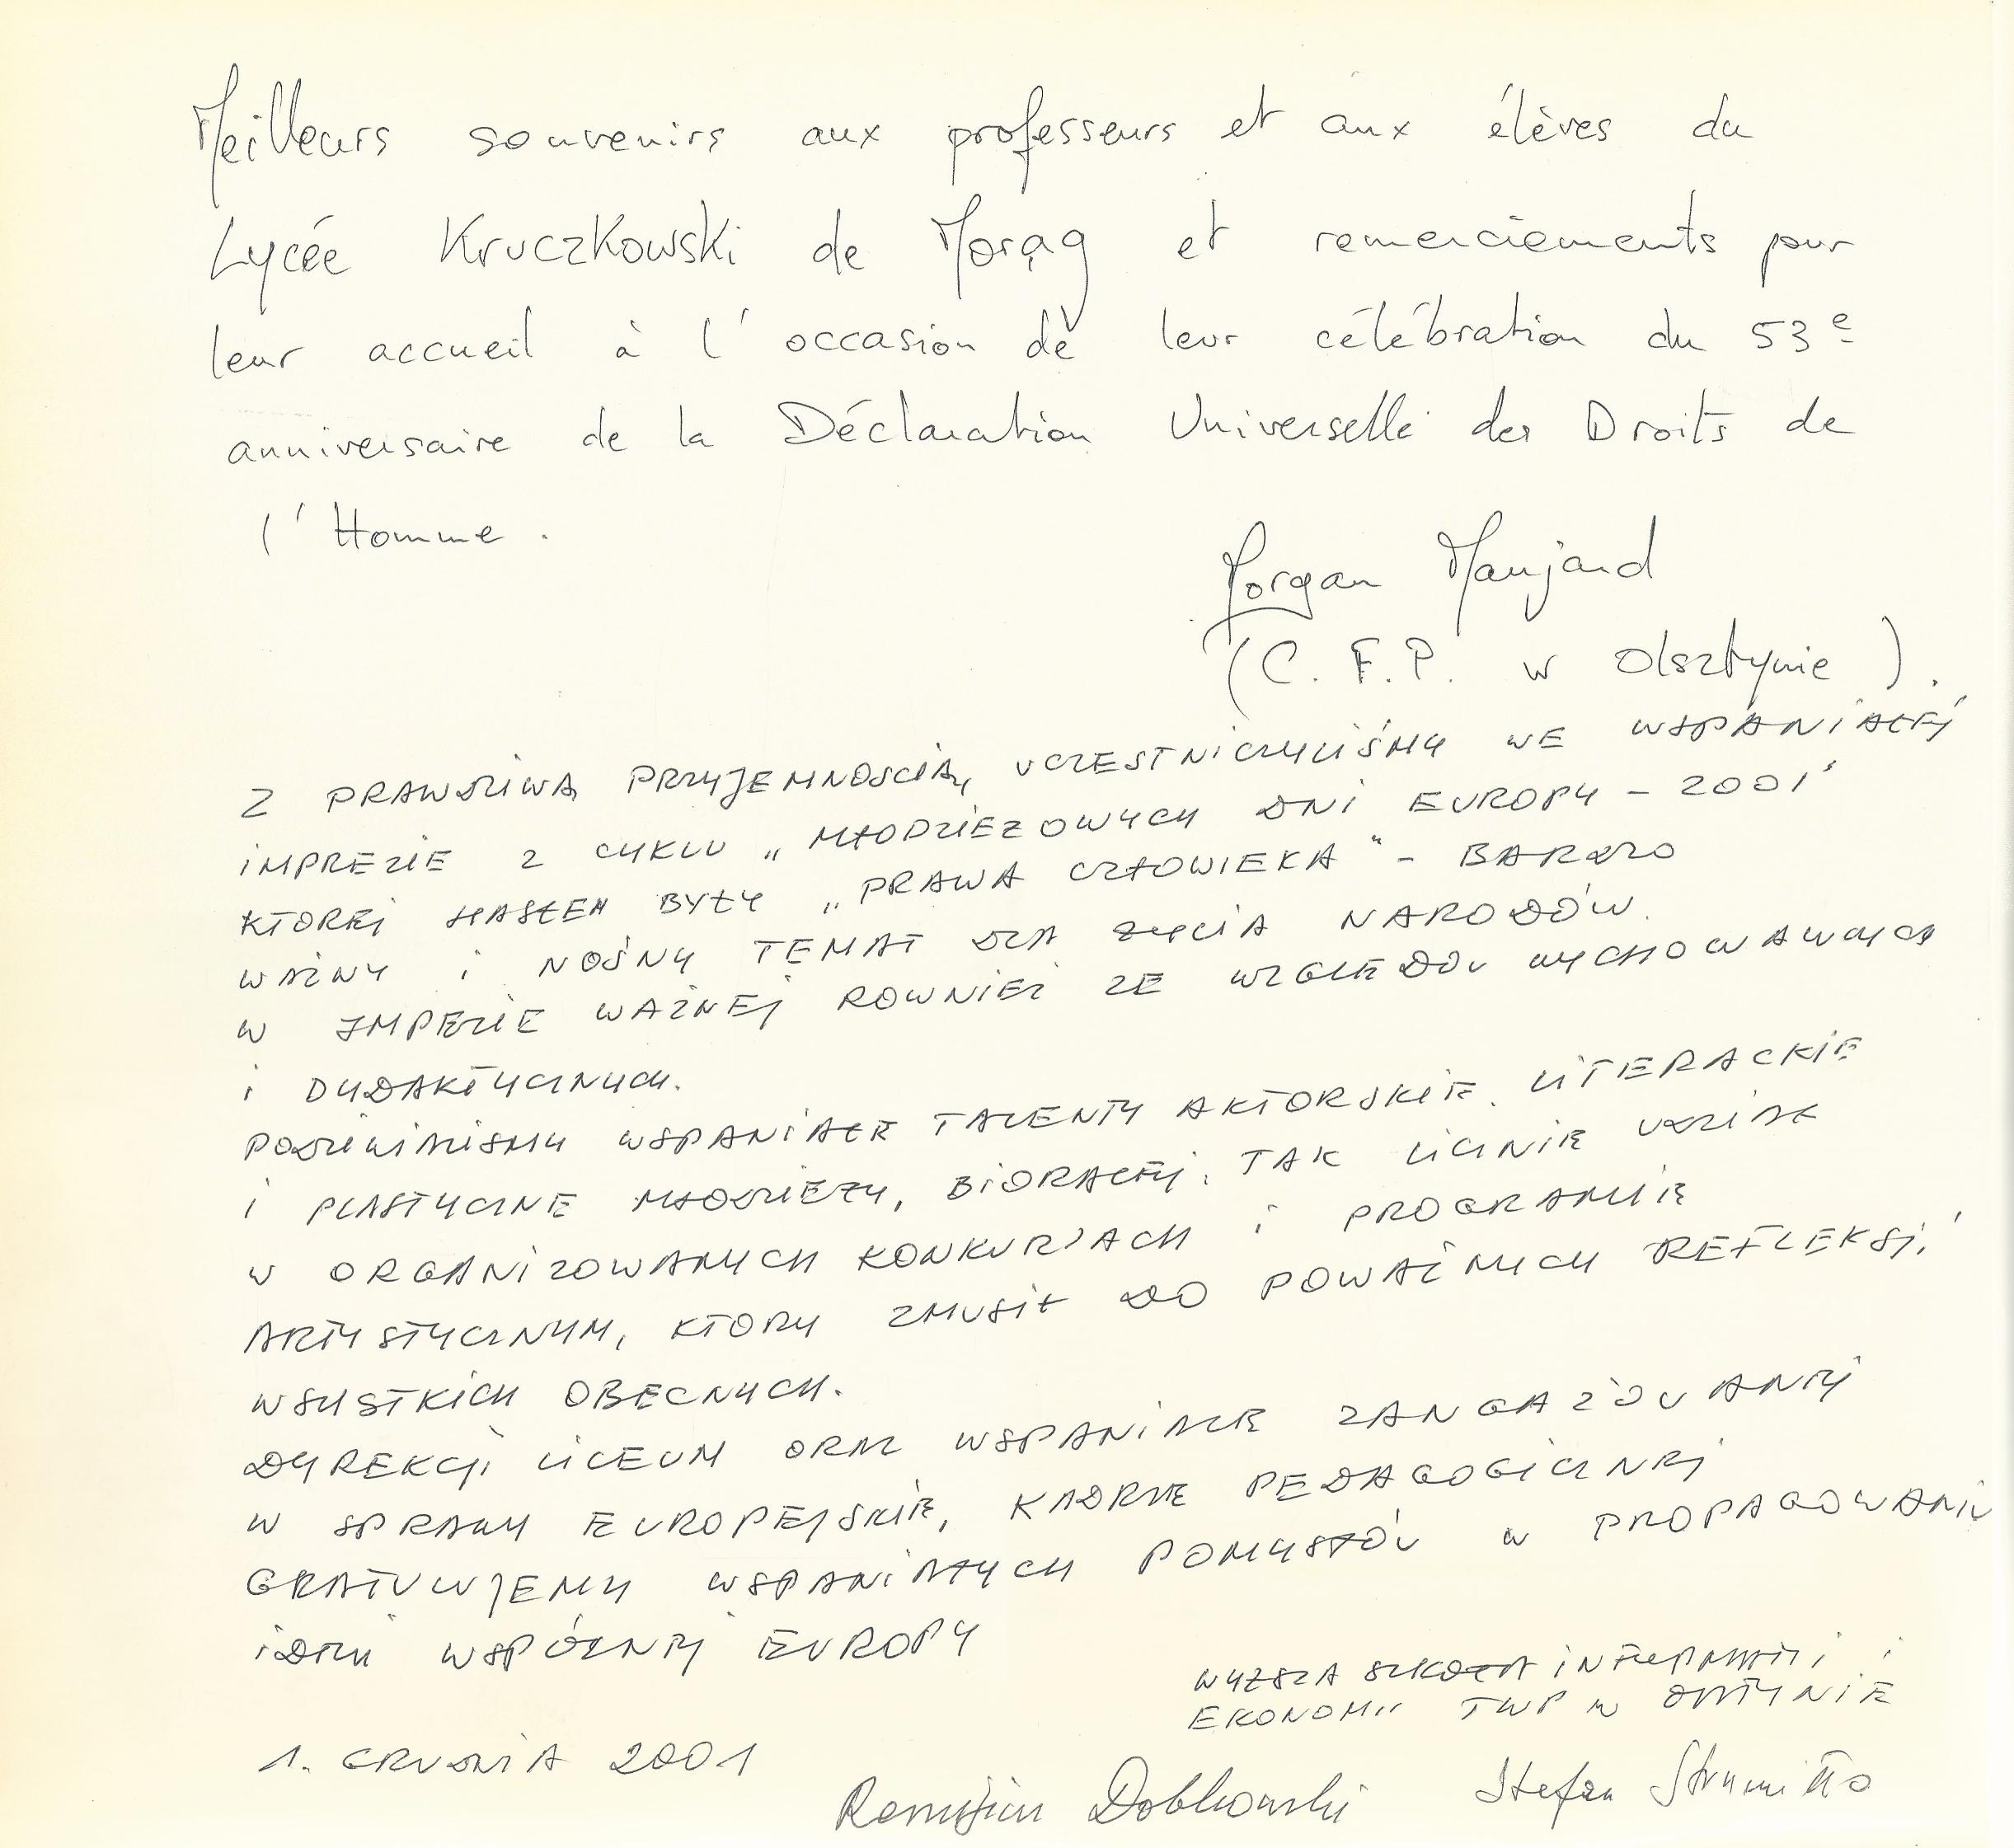 Meilleurs souvenirs aux professeurs et aux élèves du
Lycée Kruczkowski de Morąg et remerciements pour
leur accueil à l'occasion de leur célébration du 53e
anniversaire de la Déclaration Universelle des Droits de
l'Homme.
Morgan Maujard
(C.F.P. w Olsztynie).
Z PRAWDZIWĄ PRZYJEMNOSCIĄ, UCZESTNICZYLIŚMY WE WSPANIAŁEJ
IMPREZIE Z CYKLU „MŁODZIEZOWYCH DNI EUROPY – 2001"
KTOREJ HASŁEM BYŁY „PRAWA CZŁOWIEKA" – BARDZO
WAŻNY I NOŚNY TEMAT DLA ŻYCIA NARODÓW.
W IMPEZIE WAŻNEJ ROWNIEŻ ZE WZGLĘDÓW WYCHOWAWCZYCH
I DYDAKTYCZNYCH.
PODZIWIALISMY WSPANIAŁE TALENTY AKTORSKIE, LITERACKIE
I PLASTYCZNE MŁODZIEŻY, BIORĄCEJ TAK LICZNIE UDZIAŁ
W ORGANIZOWANYCH KONKURSACH I PROGRAMIE
ARTYSTYCZNYM, KTORY ZMUSIŁ DO POWAŻNYCH REFLEKSJI
WSZYSTKICH OBECNYCH.
DYREKCJI LICEUM ORAZ WSPANIALE ZANGAŻOWANEJ
W SPRAWY EUROPEJSKIE, KADRZE PEDAGOGICZNEJ
GRATULUJEMY WSPANIAŁYCH POMYSŁÓW W PROPAGOWANIU
IDEI WSPÓLNEJ EUROPY
WYŻSZA SZKOŁA INFORMATYKI I
EKONOMII TWP W OLSZTYNIE
1. GRUDNIA 2001
Remigiusz Dobkowski Stefan Strumiłło